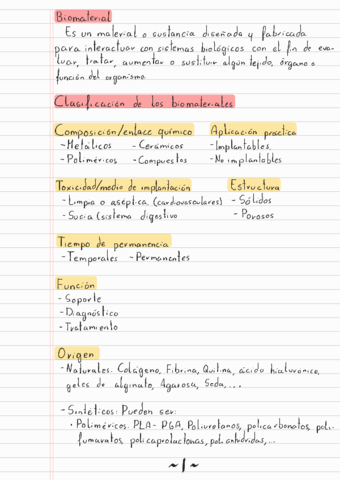 Biomaterial
Es un material o sustancia diseñada y fabricada
para interactuar con sistemas biológicos con el fin de eva-
luar, tratar, aumentar o sustituir algún tejido, órgano o
función del organismo.
Clasificación de los biomateriales
Composición/enlace químico
Aplicación práctica
- Metálicos - Cerámicos
- Implantables
- Poliméricos - Compuestos
- No implantables
Toxicidad/medio de implantación
Estructura
- Limpia o aséptica (cardiovasculares)
- Sólidos
- Sucia (sistema digestivo
- Porosos
Tiempo de permanencia
- Temporales - Permanentes
Función
- Soporte
- Diagnóstico
- Tratamiento
Origen
- Naturales. Colágeno, Fibrina, Quitina, ácido hialurónico,
geles de alginato, Agarosa, Seda,...
- Sintéticos. Pueden ser:
• Poliméricos. PLA - PGA, Poliuretanos, policarbonatos, poli-
fumaratos, policaprolactonas, polianhídridas,...
~1~